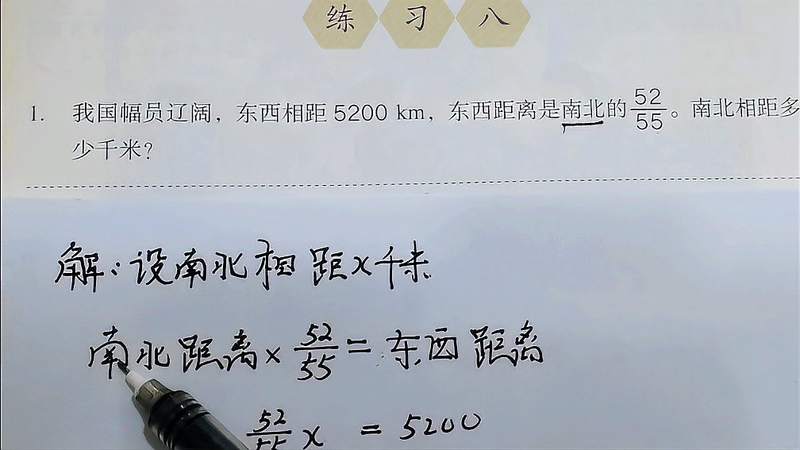 练习八
1. 我国幅员辽阔，东西相距 5200 km，东西距离是南北的52/55。南北相距多
少千米？
解：设南北相距x千米
南北距离×52/55=东西距离
52/55 x = 5200